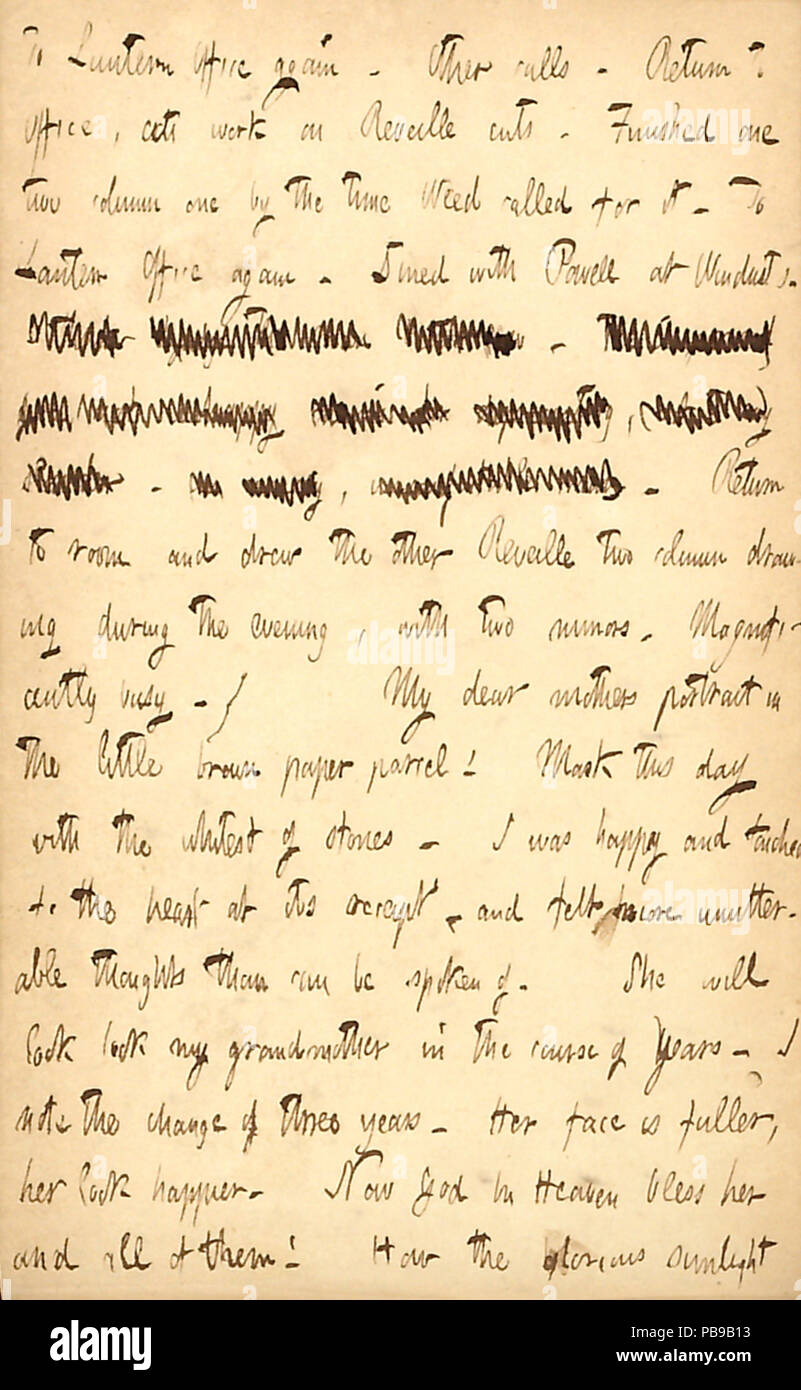 To Lantern Office again - Other calls - Return to
office, at work on Reveille cuts - Finished one
two column one by the time Weed called for it - To
Lantern Office again - Dined with Powell at Windusts -
- Return
to room and drew the other Reveille two column draw-
ing during the evening, with two minors - Magnifi-
cently busy - } My dear mothers portrait in
the little brown paper parcel! Mark this day
with the whitest of stones - I was happy and touched
to the heart at its receipt, and felt more unutter-
able thoughts than can be spoken of - She will
look look my grandmother in the course of years - I
note the change of three years - Her face is fuller,
her look happier - Now God in Heaven bless her
and all of them! How the glorious sunlight
alamy
Image ID: PB9B13
www.alamy.com